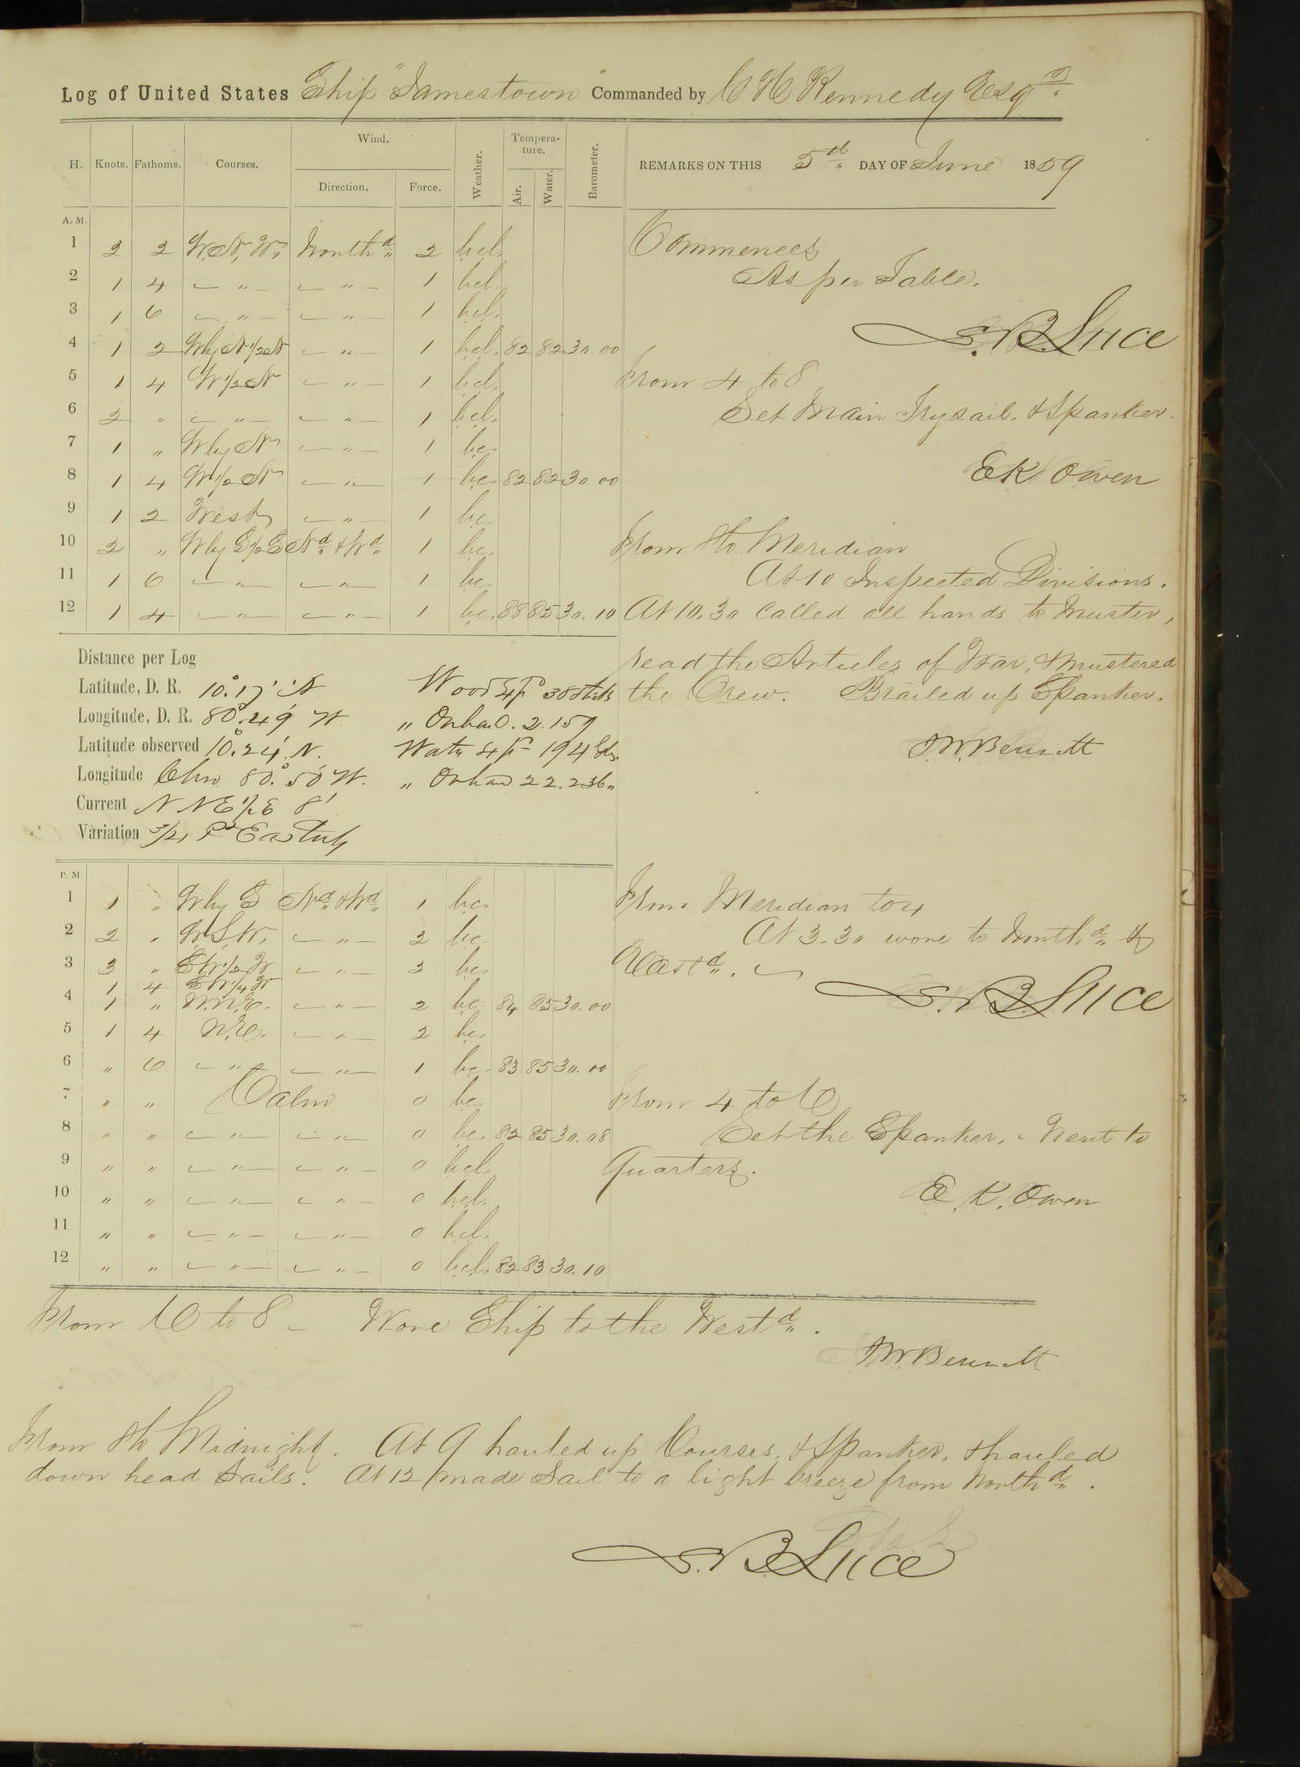 Log of United States Ship "Jamestown" Commanded by C H Kennedy Esqr.
H. Knots. Fathoms. Courses. Wind. Direction. Force. Weather. Temperature. Air. Water. Barometer.
REMARKS ON THIS 5th DAY OF June 1859
A. M.
1 2 2 W.N.W. North'd 2 b.c.l.
2 1 4 " " 1 b.c.l.
3 1 6 " " 1 b.c.l.
4 1 2 W by N 1/2 N " 1 b.c.l. 82 82 30.00
5 1 4 W 1/2 N " 1 b.c.l.
6 2 " " " 1 b.c.l.
7 1 " W by N " 1 b.c.
8 1 4 W 1/2 N " 1 b.c. 82 82 30.00
9 1 2 West " 1 b.c.
10 2 " W by S 1/2 S Nd & Wd 1 b.c.
11 1 6 " " 1 b.c.
12 1 4 " " 1 b.c. 88 85 30.10
Commences
As per Table.
S. B. Luce
From 4 to 8
Set Main Trysail. & Spanker.
E K Owen
From 8 to Meridian
At 10 Inspected Divisions.
At 10.30 called all hands to muster,
read the Articles of War, & mustered
the Crew. Brailed up Spanker.
J. W. Bennett
Distance per Log
Latitude, D. R. 10° 17' N
Longitude, D. R. 80° 49' W
Latitude observed 10° 24' N.
Longitude Chro 80° 50' W.
Current N N E 1/2 E 8'
Variation 3/4 Pt Easterly
Wood Exp 38 sticks
" On hand. 2.157
Water Exp 194 Gls.
" On hand 22.236 "
P. M.
1 1 " W by S Nd & Wd 1 b.c.
2 2 " W.S.W. " 2 b.c.
3 3 " SW 1/2 W " 2 b.c.
1 4 SW 1/4 W
4 1 " N.N.E. " 2 b.c. 84 85 30.00
5 1 4 N.E. " 2 b.c.
6 " 6 " " 1 b.c. 83 85 30.00
7 " " Calm 0 b.c.
8 " " " " 0 b.c. 82 85 30.08
9 " " " " 0 b.c.l.
10 " " " " 0 b.c.l.
11 " " " " 0 b.c.l.
12 " " " " 0 b.c.l. 82 83 30.10
From Meridian to 4
At 3.30 wore to North'd &
East'd.
S. B. Luce
From 4 to 6
Set the Spanker, Went to
Quarters.
E. K. Owen
From 6 to 8 Wore Ship to the West'd.
J W Bennett
From 8 to Midnight. At 9 hauled up Courses, & Spanker, & hauled
down head Sails. At 12 made Sail to a light breeze from North'd.
S. B. Luce